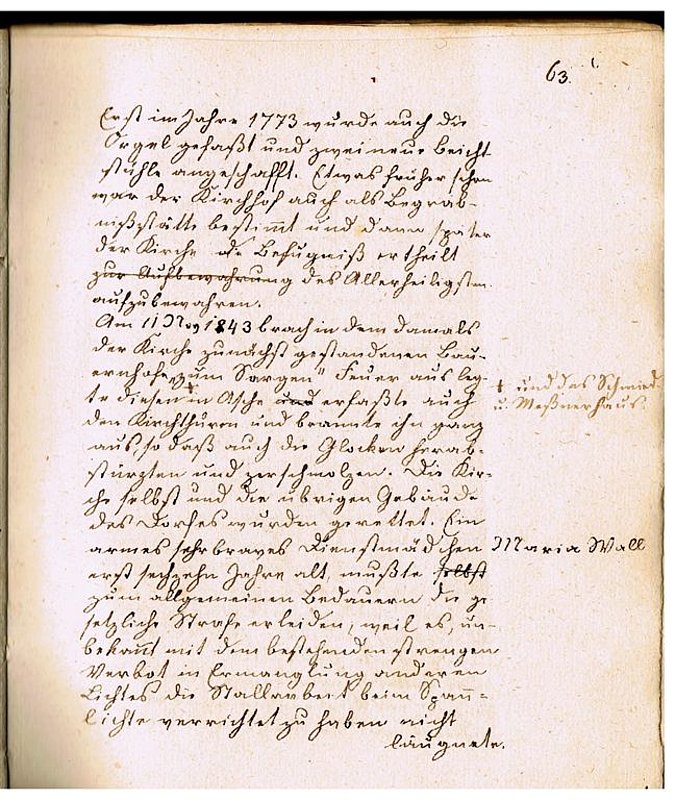 63.
Erst im Jahre 1773 wurde auch die
Orgel gefaßt und zwei neue Beicht-
stühle angeschafft. Etwas früher schon
war der Kirchhof auch als Begräb-
nißstätte bestimmt und dann später
der Kirche die Befugniß ertheilt
zur Aufbewahrung des Allerheiligsten
aufzubewahren.
Am 11 Nov 1843 brach in dem damals
der Kirche zunächst gestandenen Bau-
ernhofe „zum Sargen" Feuer aus leg-
te diesen + in Asche und erfaßte auch
+ und das Schmied-
u. Meßnerhaus.
den Kirchthurm und brannte ihn ganz
aus, so daß auch die Glocken herab-
stürzten und zerschmolzen. Die Kir-
che selbst und die übrigen Gebäude
des Dorfes wurden gerettet. Ein
armes sehr braves Dienstmädchen Maria Wall
erst sechzehn Jahre alt, mußte selbst
zum allgemeinen Bedauern die ge-
setzliche Strafe erleiden, weil es, un-
bekannt mit dem bestehenden strengen
Verbot in Ermanglung anderen
Lichtes die Stallarbeit beim Span-
lichte verrichtet zu haben nicht
läugnete.